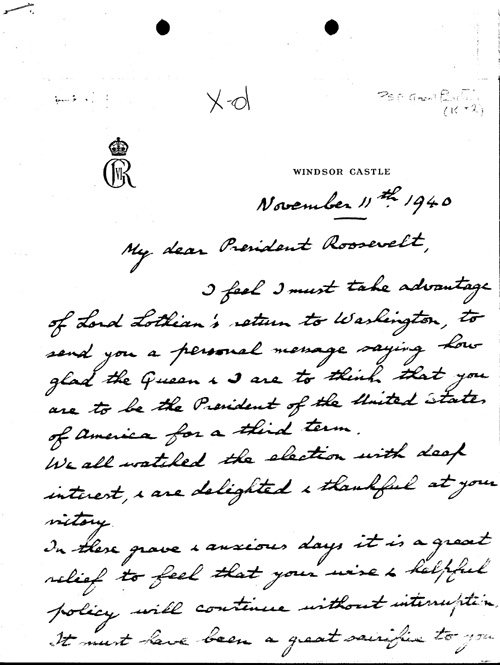 X-d
P.S.F.
(K+Q)
GRVI
WINDSOR CASTLE
November 11th 1940
My dear President Roosevelt,
I feel I must take advantage
of Lord Lothian's return to Washington, to
send you a personal message saying how
glad the Queen & I are to think that you
are to be the President of the United States
of America for a third term.
We all watched the election with deep
interest, & are delighted & thankful at your
victory.
In these grave & anxious days it is a great
relief to feel that your wise & helpful
policy will continue without interruption.
It must have been a great sacrifice to you